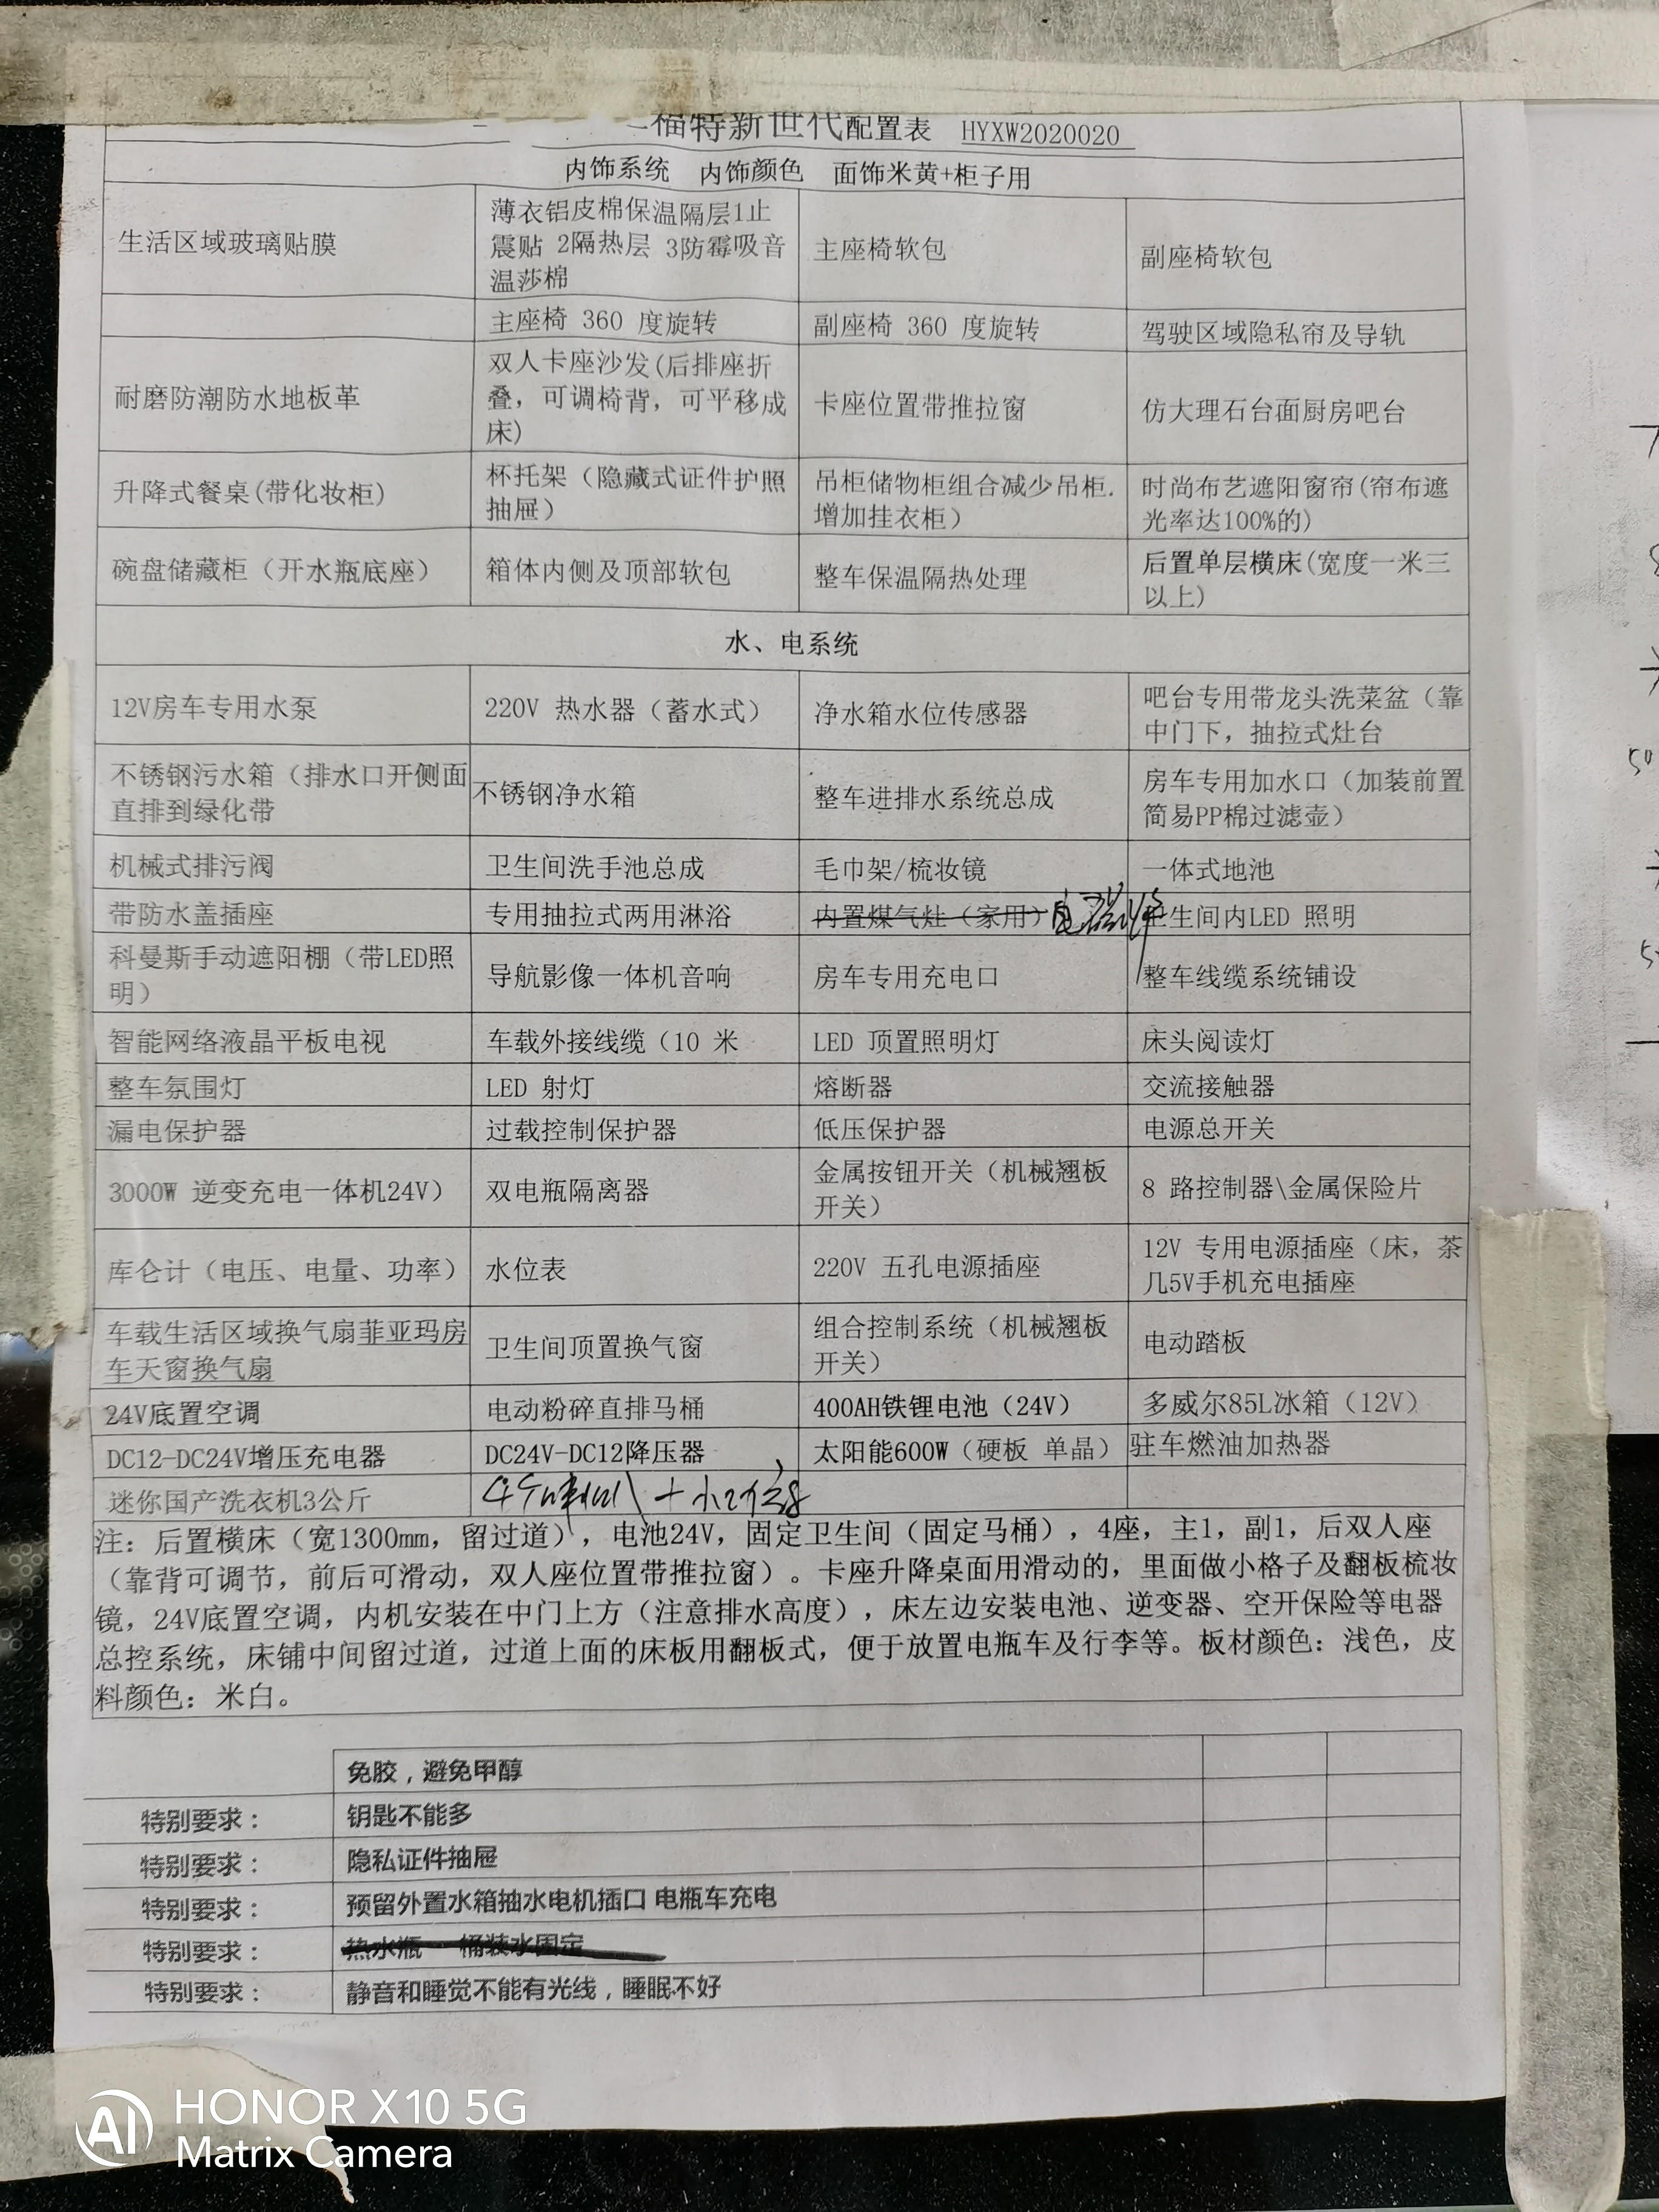 福特新世代配置表 HYXW2020020
内饰系统 内饰颜色 面饰米黄+柜子用
生活区域玻璃贴膜
薄衣铝皮棉保温隔层1止
震贴 2隔热层 3防霉吸音
温莎棉
主座椅软包
副座椅软包
主座椅 360 度旋转
副座椅 360 度旋转
驾驶区域隐私帘及导轨
耐磨防潮防水地板革
双人卡座沙发(后排座折
叠，可调椅背，可平移成
床)
卡座位置带推拉窗
仿大理石台面厨房吧台
升降式餐桌(带化妆柜)
杯托架（隐藏式证件护照
抽屉）
吊柜储物柜组合减少吊柜.
增加挂衣柜）
时尚布艺遮阳窗帘(帘布遮
光率达100%的)
碗盘储藏柜（开水瓶底座）
箱体内侧及顶部软包
整车保温隔热处理
后置单层横床(宽度一米三
以上)
水、电系统
12V房车专用水泵
220V 热水器（蓄水式）
净水箱水位传感器
吧台专用带龙头洗菜盆（靠
中门下，抽拉式灶台
不锈钢污水箱（排水口开侧面
直排到绿化带
不锈钢净水箱
整车进排水系统总成
房车专用加水口（加装前置
简易PP棉过滤壶）
机械式排污阀
卫生间洗手池总成
毛巾架/梳妆镜
一体式地池
带防水盖插座
专用抽拉式两用淋浴
内置煤气灶（家用）电磁炉
卫生间内LED 照明
科曼斯手动遮阳棚（带LED照
明）
导航影像一体机音响
房车专用充电口
整车线缆系统铺设
智能网络液晶平板电视
车载外接线缆（10 米
LED 顶置照明灯
床头阅读灯
整车氛围灯
LED 射灯
熔断器
交流接触器
漏电保护器
过载控制保护器
低压保护器
电源总开关
3000W 逆变充电一体机24V）
双电瓶隔离器
金属按钮开关（机械翘板
开关）
8 路控制器\金属保险片
库仑计（电压、电量、功率）
水位表
220V 五孔电源插座
12V 专用电源插座（床，茶
几5V手机充电插座
车载生活区域换气扇菲亚玛房
车天窗换气扇
卫生间顶置换气窗
组合控制系统（机械翘板
开关）
电动踏板
24V底置空调
电动粉碎直排马桶
400AH铁锂电池（24V）
多威尔85L冰箱（12V）
DC12-DC24V增压充电器
DC24V-DC12降压器
太阳能600W（硬板 单晶）
驻车燃油加热器
迷你国产洗衣机3公斤
注：后置横床（宽1300mm，留过道），电池24V，固定卫生间（固定马桶），4座，主1，副1，后双人座
（靠背可调节，前后可滑动，双人座位置带推拉窗）。卡座升降桌面用滑动的，里面做小格子及翻板梳妆
镜，24V底置空调，内机安装在中门上方（注意排水高度），床左边安装电池、逆变器、空开保险等电器
总控系统，床铺中间留过道，过道上面的床板用翻板式，便于放置电瓶车及行李等。板材颜色：浅色，皮
料颜色：米白。
免胶，避免甲醇
特别要求： 钥匙不能多
特别要求： 隐私证件抽屉
特别要求： 预留外置水箱抽水电机插口 电瓶车充电
特别要求： 热水瓶 桶装水固定
特别要求： 静音和睡觉不能有光线，睡眠不好
AI HONOR X10 5G
Matrix Camera